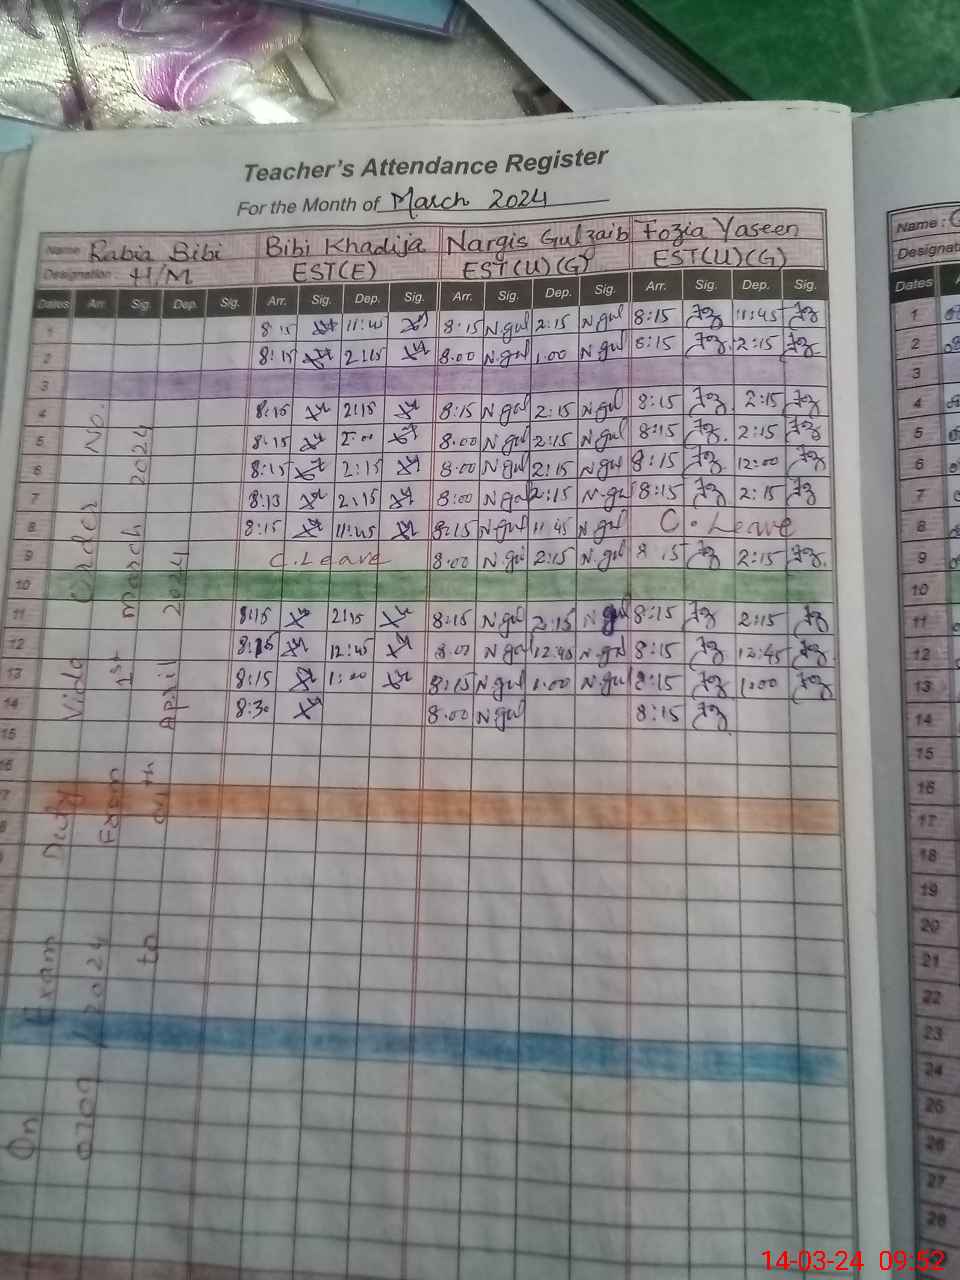 Teacher's Attendance Register
For the Month of March 2024
Name Rabia Bibi Bibi Khadija Nargis Gulzaib Fozia Yaseen
Designation : H/M EST(E) EST(U)(G) EST(U)(G)
Dates Arr. Sig. Dep. Sig. Arr. Sig. Dep. Sig. Arr. Sig. Dep. Sig. Arr. Sig. Dep. Sig.
1 8:15 11:45 8:15 N.gul 2:15 N.gul 8:15 Fz 11:45 Fz
2 8:15 2:15 8:00 N.gul 1:00 N.gul 8:15 Fz 2:15 Fz
3
4 8:15 2:15 8:15 N.gul 2:15 N.gul 8:15 Fz 2:15 Fz
5 8:15 2:00 8:00 N.gul 2:15 N.gul 8:15 Fz 2:15 Fz
6 8:15 2:15 8:00 N.gul 2:15 N.gul 8:15 Fz 12:00 Fz
7 8:13 2:15 8:00 N.gul 2:15 N.gul 8:15 Fz 2:15 Fz
8 8:15 11:45 8:15 N.gul 11:45 N.gul C. Leave
9 C. Leave 8:00 N.gul 2:15 N.gul 8 15 Fz 2:15 Fz
10
11 8:15 2:15 8:15 N.gul 2:15 N.gul 8:15 Fz 2:15 Fz
12 8:15 12:45 8:00 N.gul 12:45 N.gul 8:15 Fz 12:45 Fz
13 8:15 1:00 8:15 N.gul 1:00 N.gul 8:15 Fz 1:00 Fz
14 8:30 8:00 N.gul 8:15 Fz
15
16
On Exam Duty Vide Order No.
0709 / 2024 Exam 1st March 2024
to 04th April 2024
Name :
Designati
Dates
1
2
3
4
5
6
7
8
9
10
11
12
13
14
15
16
17
18
19
20
21
22
23
24
25
26
27
28
14-03-24 09:52